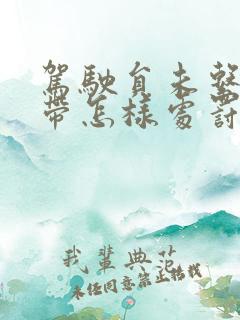 駕駛員未繫
帶怎樣處罰
我輩典范
未经同意禁止搭载